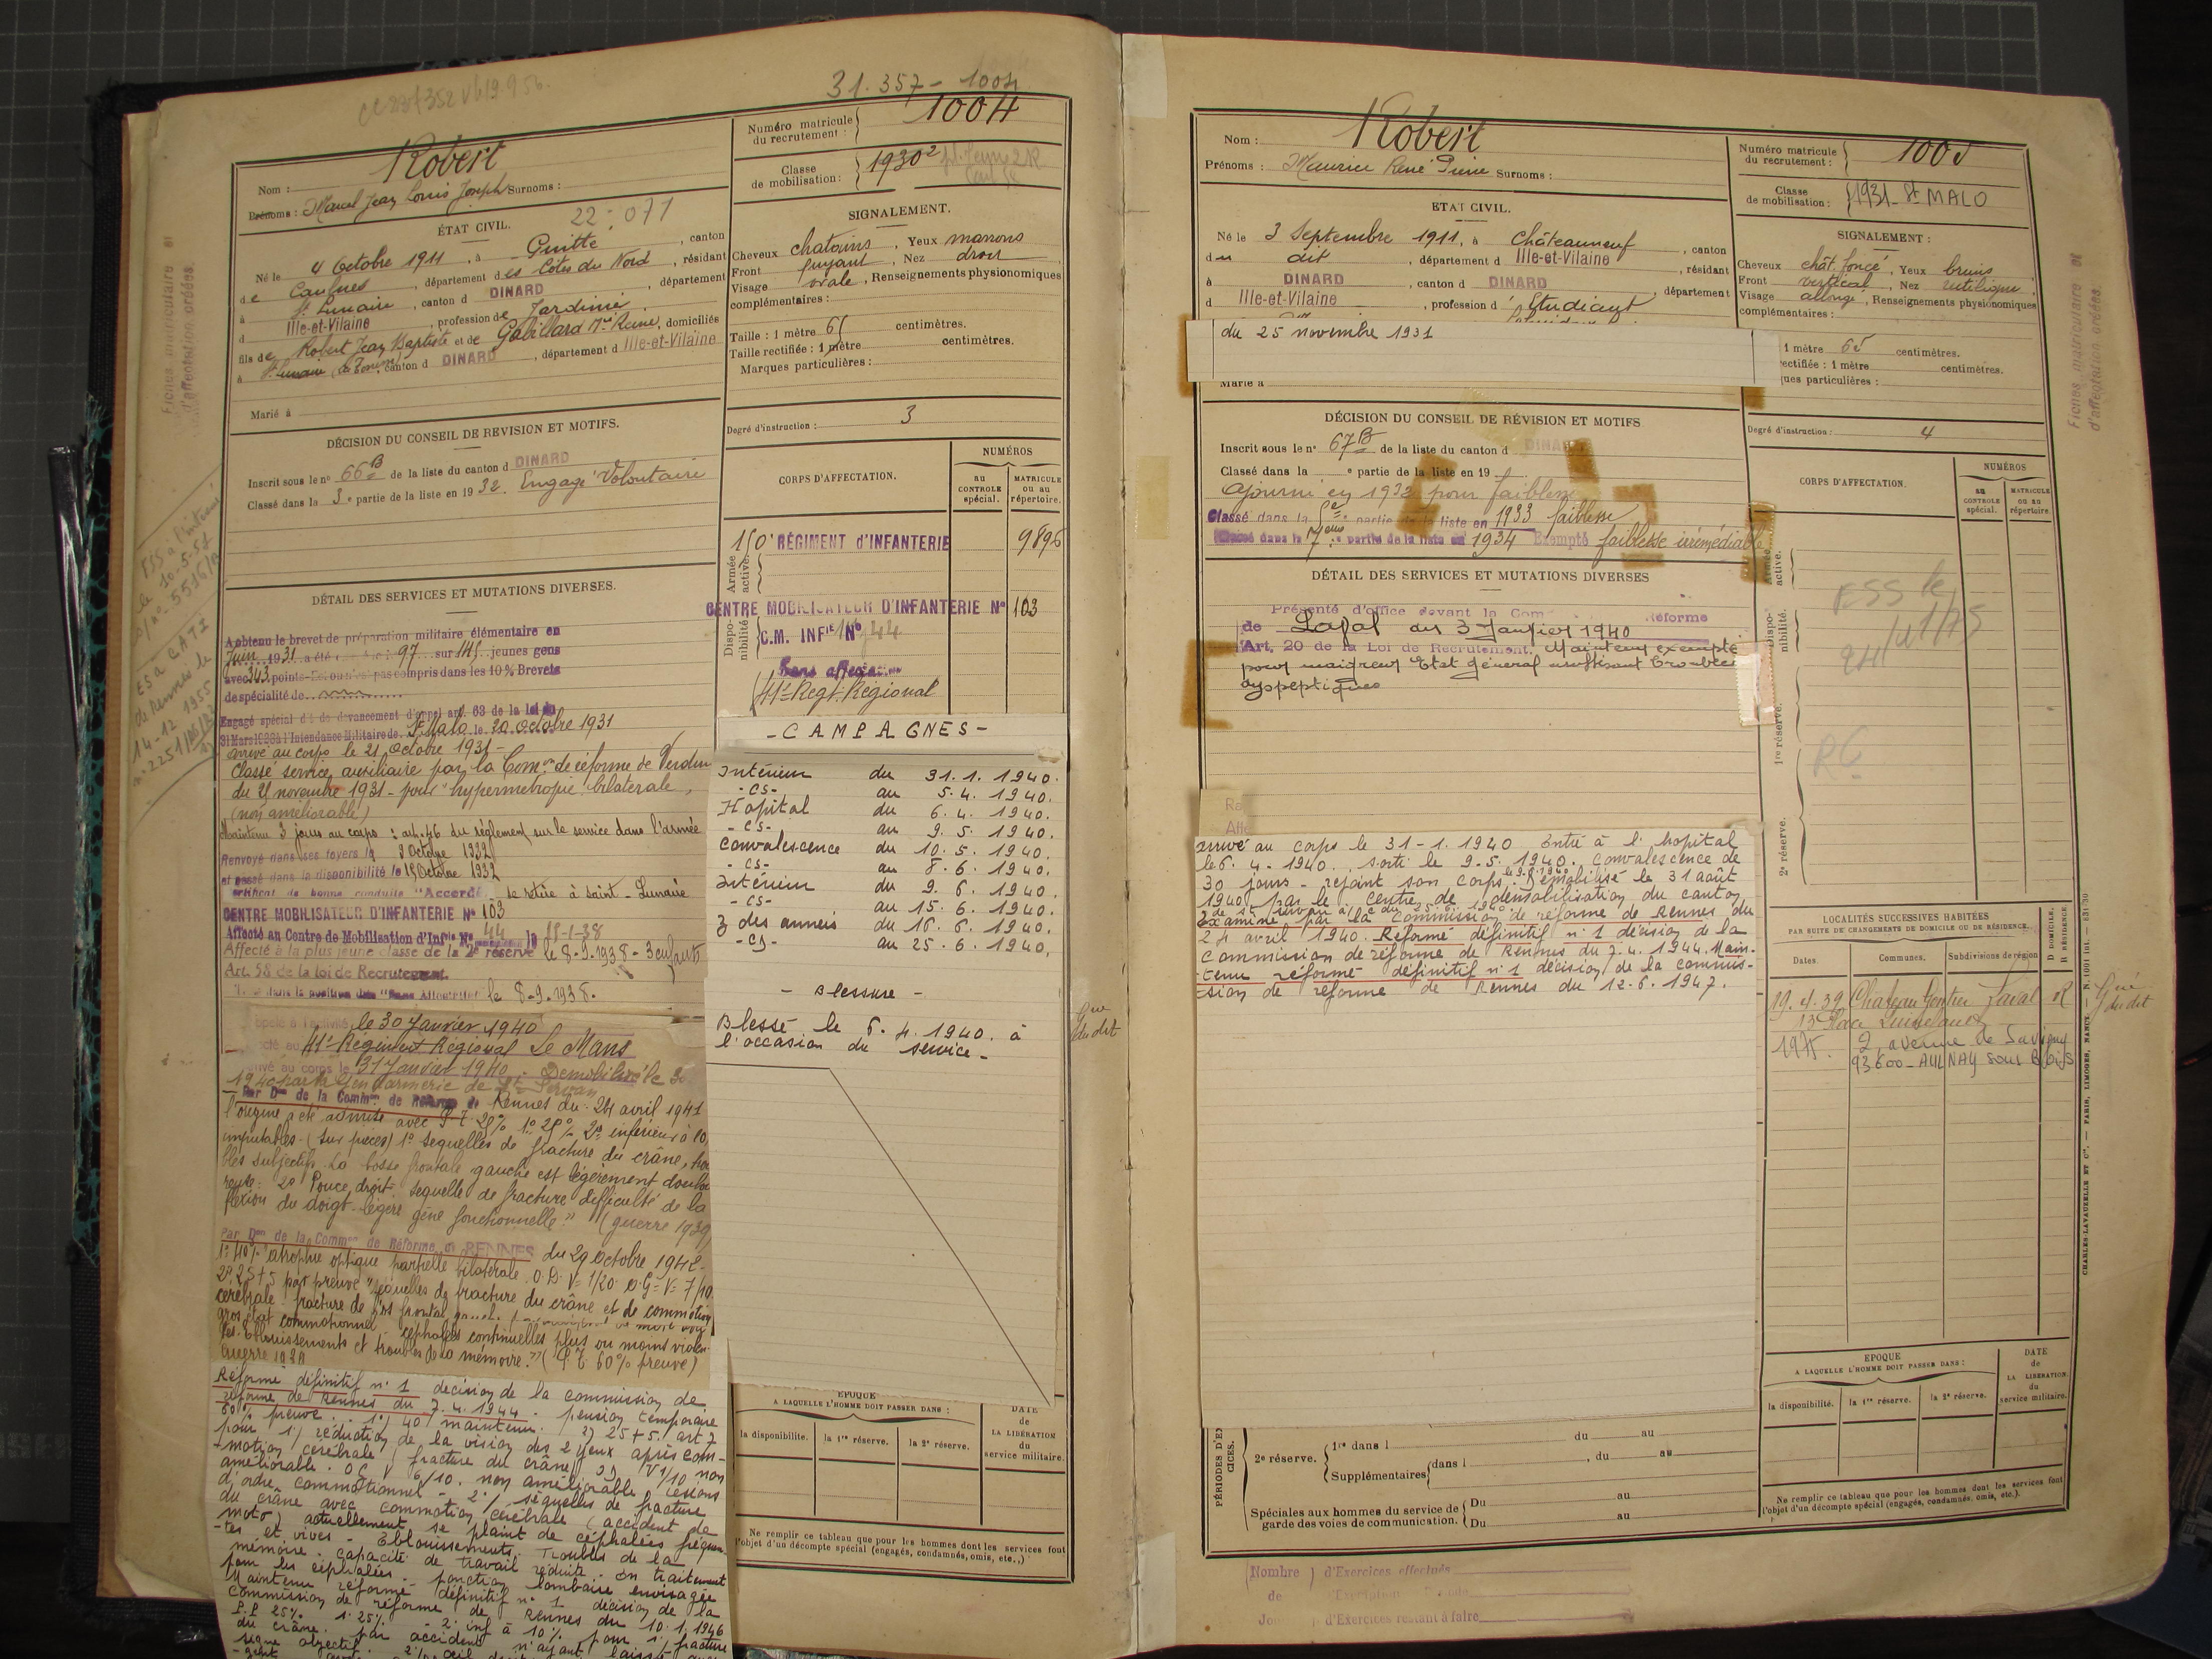 31.357 - 1004
Robert
Nom :
Prénoms : Marcel Jean Louis Joseph Surnoms :
Numéro matricule du recrutement : 1004
Classe de mobilisation : 1930²
22-071
ÉTAT CIVIL.
Né le 4 Octobre 1911, à Guitté, canton
de Caulnes, département des Côtes du Nord, résidant
à St Lunaire, canton d DINARD, département
d Ille-et-Vilaine, profession de Jardinier
fils de Robert Jean Baptiste et de Gabillard Mie Reine, domiciliés
à St Lunaire, canton d DINARD, département d Ille-et-Vilaine
Marié à
SIGNALEMENT.
Cheveux chatains, Yeux marrons
Front fuyant, Nez droit
Visage ovale, Renseignements physionomiques
complémentaires :
Taille : 1 mètre 61 centimètres.
Taille rectifiée : 1 mètre centimètres.
Marques particulières :
Degré d'instruction : 3
DÉCISION DU CONSEIL DE REVISION ET MOTIFS.
Inscrit sous le n° 66 B de la liste du canton d DINARD
Classé dans la 3e partie de la liste en 1932. Engagé Volontaire
CORPS D'AFFECTATION.
NUMÉROS
au CONTROLE spécial.
MATRICULE ou au répertoire.
Armée active.
150e RÉGIMENT d'INFANTERIE 9896
Disponibilité
CENTRE MOBILISATEUR D'INFANTERIE N° 103
C.M. INFie N° 44
Sans affectation
41e Regt Régional
DÉTAIL DES SERVICES ET MUTATIONS DIVERSES.
A obtenu le brevet de préparation militaire élémentaire en
Juin 1931 a été 97 sur 145 jeunes gens
avec 243 points pas compris dans les 10% Brevets
de spécialité de
Engagé spécial dit de devancement d'appel art. 63 de la loi du
31 Mars 1928 à l'Intendance Militaire de St Malo le 20 octobre 1931
arrivé au corps le 21 Octobre 1931 -
Classé service auxiliaire par la Comon de réforme de Verdun
du 25 novembre 1931 - pour "hypermetropie bilatérale,
(non améliorable)
Maintenu 3 jours au corps : art. 46 du règlement sur le service dans l'armée
Renvoyé dans ses foyers le 9 Octobre 1932
et passé dans la disponibilité le 15 Octobre 1932
Certificat de bonne conduite "Accordé" se retire à Saint-Lunaire
CENTRE MOBILISATEUR D'INFANTERIE N° 103
Affecté au Centre de Mobilisation d'Infie N° 44 le 15-1-38
Affecté à la plus jeune classe de la 2e réserve le 8-9-1938 - 3 enfants
Art. 58 de la loi de Recrutement.
dans la position dite "Sans Affectation" le 8-9-1938.
Rappelé à l'activité le 30 Janvier 1940
41e Régiment Régional Le Mans
Arrivé au corps le 31 Janvier 1940. Démobilisé le
1940 par la Gendarmerie de St Servan
Par Don de la Common de Réforme de Rennes du 24 avril 1941
l'origine a été admise avec P.T 20%
imputables (sur pièces) 1° sequelles de fracture du crâne,
bles subjectifs. La bosse frontale gauche est légèrement doulou
reuse. 2° Pouce droit. sequelle de fracture difficulté de la
flexion du doigt. légère gêne fonctionnelle." (guerre 1939)
Par Don de la Common de Réforme de RENNES du 29 Octobre 1942
1° 40% "atrophie optique partielle bilatérale. O.D. V=1/20 O.G=V=7/10
2° 25+5 par preuve "séquelles de fracture du crâne et de commotion
cérébrale - fracture de l'os frontal
gros état commotionnel - céphalées continuelles plus ou moins violen
tes. Eblouissements et troubles de la mémoire." (P.T 60% preuve)
Guerre 1939
Réformé définitif n° 1 décision de la commission de
réforme de Rennes du 7.4.1944. pension temporaire
60% preuve. 1°) 40 maintenu. 2) 25+5. art 7
pour 1) réduction de la vision des 2 yeux après com-
-motion cérébrale, fracture du crâne, OD V 1/10 non
améliorable. OG V 6/10. non améliorable, lésions
d'ordre commotionnel - 2°/ séquelles de fracture
du crâne avec commotion cérébrale (accident de
moto) actuellement se plaint de céphalées fréquen-
-tes et vives. Eblouissements. Troubles de la
mémoire. capacité de travail réduite. En traitement
pour les céphalées. ponction lombaire envisagée
Maintenu réformé définitif n° 1 décision de la
commission de réforme de Rennes du 10.1.1946
P.P 25%. 1° 25% - 2° inf à 10% pour 1°/ fracture
du crâne. par accident n'ayant laissé
signe objectif.
- CAMPAGNES -
Intérieur du 31.1.1940.
-CS- au 5.4.1940.
Hopital du 6.4.1940.
-CS- au 9.5.1940.
Convalescence du 10.5.1940.
-CS- au 8.6.1940.
Intérieur du 9.6.1940.
-CS- au 15.6.1940.
Z des armées du 16.6.1940.
-CS- au 25.6.1940.
- Blessure -
Blessé le 6.4.1940. à
l'occasion du service -
EPOQUE
A LAQUELLE L'HOMME DOIT PASSER DANS :
la disponibilité.
la 1re réserve.
la 2e réserve.
DATE de LA LIBÉRATION du service militaire.
Ne remplir ce tableau que pour les hommes dont les services font
l'objet d'un décompte spécial (engagés, condamnés, omis, etc.,)
Fiches matriculaire et
d'affectation créées.
Robert
Nom :
Prénoms : Maurice René Pierre Surnoms :
Numéro matricule du recrutement : 1005
Classe de mobilisation : 1931 - St MALO
ETAT CIVIL.
Né le 3 Septembre 1911, à Châteauneuf, canton
du dit, département d Ille-et-Vilaine, résidant
à DINARD, canton d DINARD, département
d Ille-et-Vilaine, profession d' étudiant
du 25 novembre 1931
Marié à
SIGNALEMENT :
Cheveux chât. foncé, Yeux bruns
Front vertical, Nez rectiligne,
Visage allongé, Renseignements physionomiques
complémentaires :
1 mètre 65 centimètres.
rectifiée : 1 mètre centimètres.
ques particulières :
Degré d'instruction : 4
DÉCISION DU CONSEIL DE RÉVISION ET MOTIFS
Inscrit sous le n° 67 B de la liste du canton d DINARD
Classé dans la e partie de la liste en 19
ajourné en 1932 pour faiblesse
Classé dans la partie de la liste en 1933 faiblesse
Classé dans la 7e partie de la liste en 1934 Exempté faiblesse irrémédiable
DÉTAIL DES SERVICES ET MUTATIONS DIVERSES
Présenté d'office devant la Com Réforme
de Laval du 3 Janvier 1940
Art. 20 de la Loi de Recrutement. Maintenu exempté
pour maigreur Etat général insuffisant Troubles
dyspeptiques
arrivé au corps le 31-1-1940 Entré à l'hopital
le 6.4-1940. sorti le 9-5.1940. convalescence de
30 jours - rejoint son corps le 9.6.1940. Démobilisé le 31 août
1940 par le centre de démobilisation du canton
de St Servan
Examiné par la commission de réforme de Rennes du
24 avril 1940. Réformé définitif n° 1 décision de la
commission de réforme de Rennes du 7.4.1944. Main-
-tenu réformé définitif n° 1 décision de la commis-
-sion de réforme de Rennes du 12.6.1947.
CORPS D'AFFECTATION.
NUMÉROS
au CONTROLE spécial.
MATRICULE ou au répertoire.
active.
Disponibilité.
1re réserve.
2e réserve.
ESS le
24/1/75
LOCALITÉS SUCCESSIVES HABITÉES
PAR SUITE DE CHANGEMENTS DE DOMICILE OU DE RÉSIDENCE.
Dates.
Communes.
Subdivisions de région
D DOMICILE, R RÉSIDENCE
19.4.39 Chateau Gontier Laval R
1975. 2, avenue de Savigny
93600 - AULNAY sous Bois
EPOQUE
A LAQUELLE L'HOMME DOIT PASSER DANS :
la disponibilité.
la 1re réserve.
la 2e réserve.
DATE de LA LIBÉRATION du service militaire.
Ne remplir ce tableau que pour les hommes dont les services font
l'objet d'un décompte spécial (engagés, condamnés, omis, etc.).
2e réserve. 1re dans l du au
Supplémentaires dans l , du au
Spéciales aux hommes du service de garde des voies de communication. Du au
Du au
Nombre d'Exercices effectués
de
d'Exercices restant à faire
Fiches matriculaire et
d'affectation créées.
CHARLES-LAVAUZELLE ET Cie. — PARIS, LIMOGES, NANCY